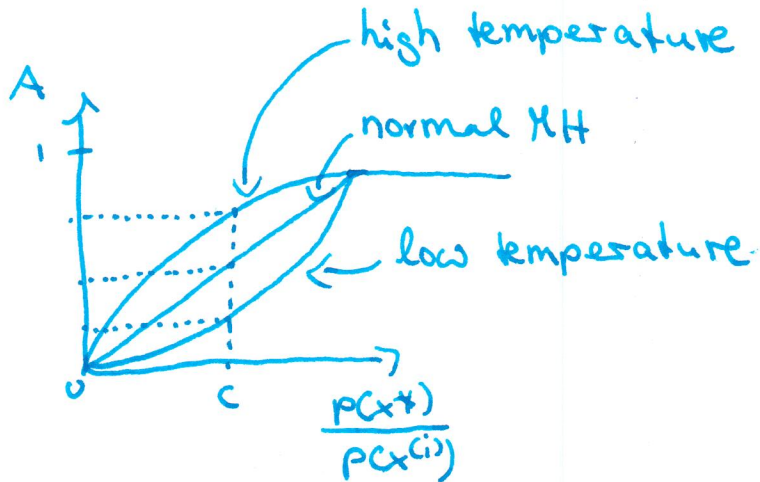 high temperature
A
normal MH
1
low temperature
0
c
p(x*)
p(x(i))